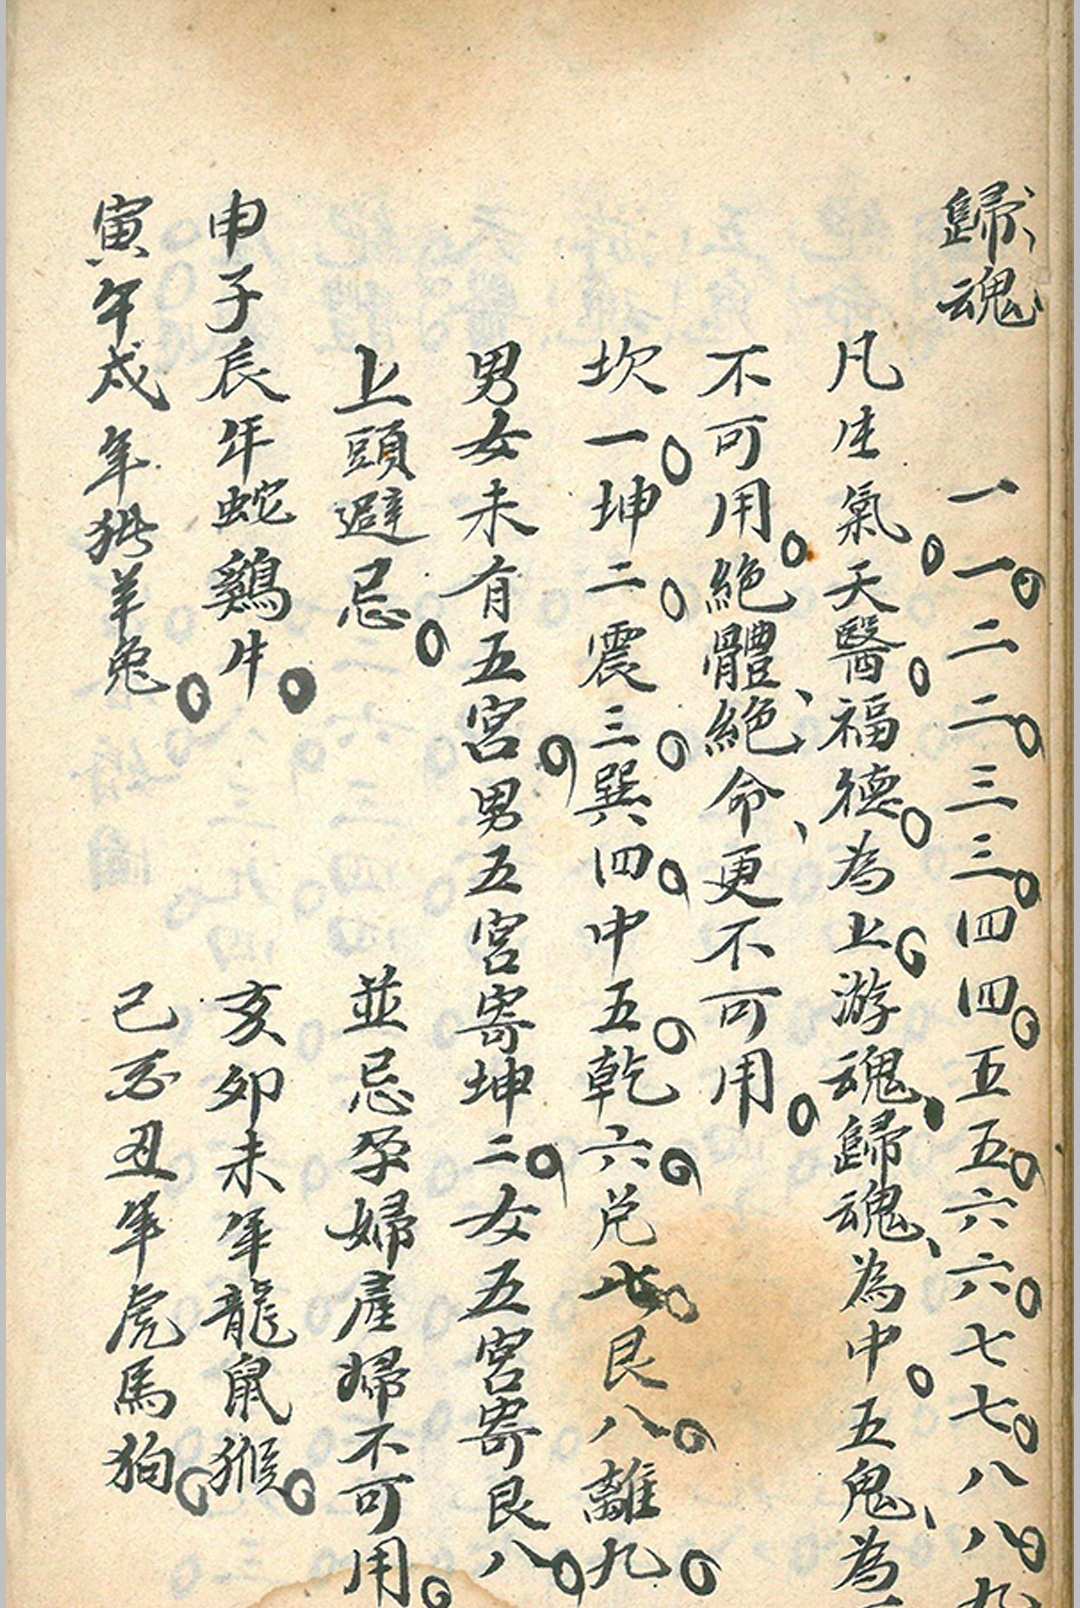 歸魂　一一。二二。三三。四四。五五。六六。七七。八八。九
凡生氣。天醫。福德。為上。游魂、歸魂、為中。五鬼、為
不可用。絕體、絕命、更不可用。
坎一。坤二。震三。巽四。中五。乾六。兌七。艮八。離九。
男女未有五宮。男五宮寄坤二。女五宮寄艮八。
上頭避忌。　並忌孕婦產婦不可用。
申子辰年蛇鷄牛。　亥卯未年龍鼠猴。
寅午戌年猪羊兔。　巳酉丑年虎馬狗。